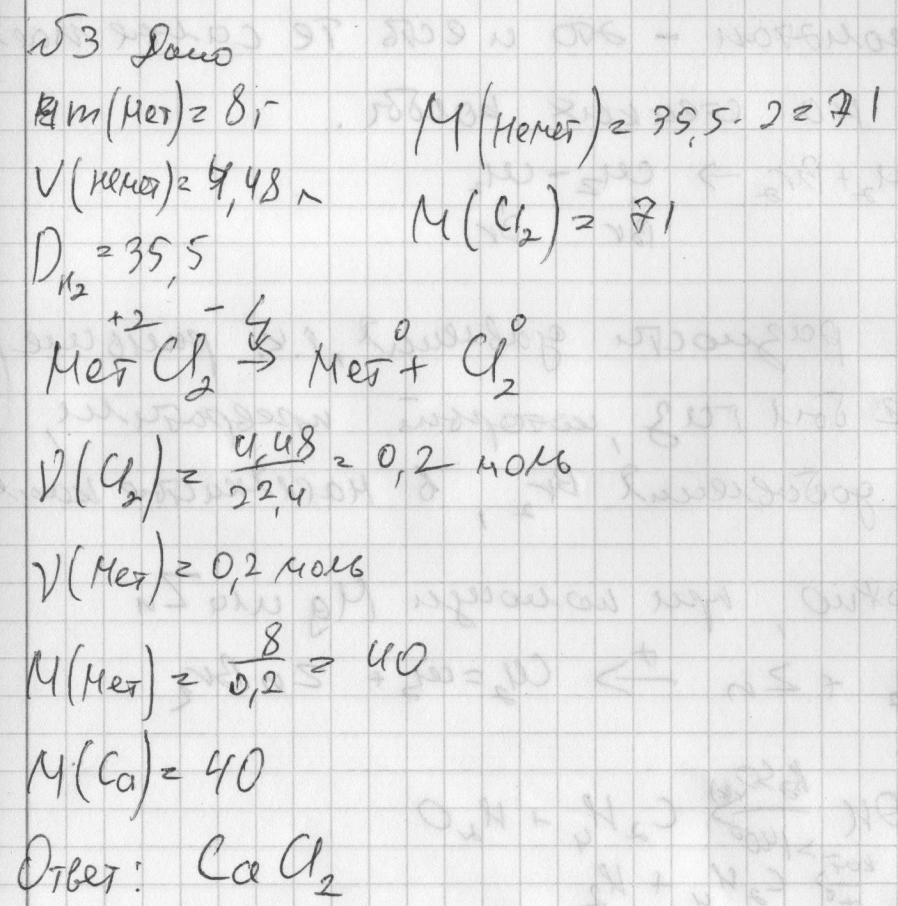 №3 Дано
m(мет) = 8 г
V(немет) = 4,48 л
D H₂ = 35,5
M(немет) = 35,5 · 2 = 71
M(Cl₂) = 71
+2 - 0 0
Мет Cl₂ → Мет + Cl₂
ν(Cl₂) = 4,48/22,4 = 0,2 моль
ν(мет) = 0,2 моль
M(мет) = 8/0,2 = 40
M(Ca) = 40
Ответ: CaCl₂